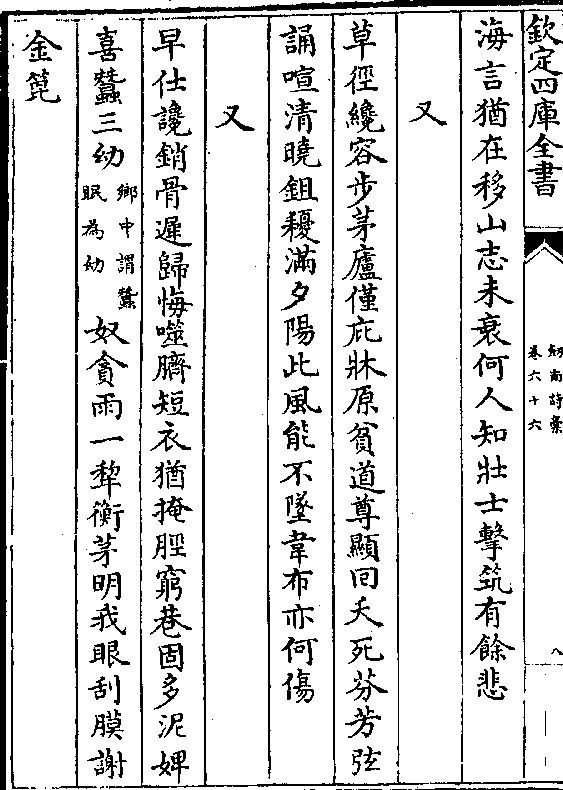 欽定四庫全書
劍南詩藁
卷六十六
八
海言猶在移山志未衰何人知壯士擊筑有餘悲
又
草徑纔容步茅廬僅庇牀原貧道尊顯回夭死芬芳弦
誦喧清曉鉏耰滿夕陽此風能不墜韋布亦何傷
又
早仕讒銷骨遲歸悔噬臍短衣猶掩脛窮巷固多泥婢
喜蠶三幼鄉中謂蠶眠為幼奴貪雨一犂衡茅明我眼刮膜謝
金篦